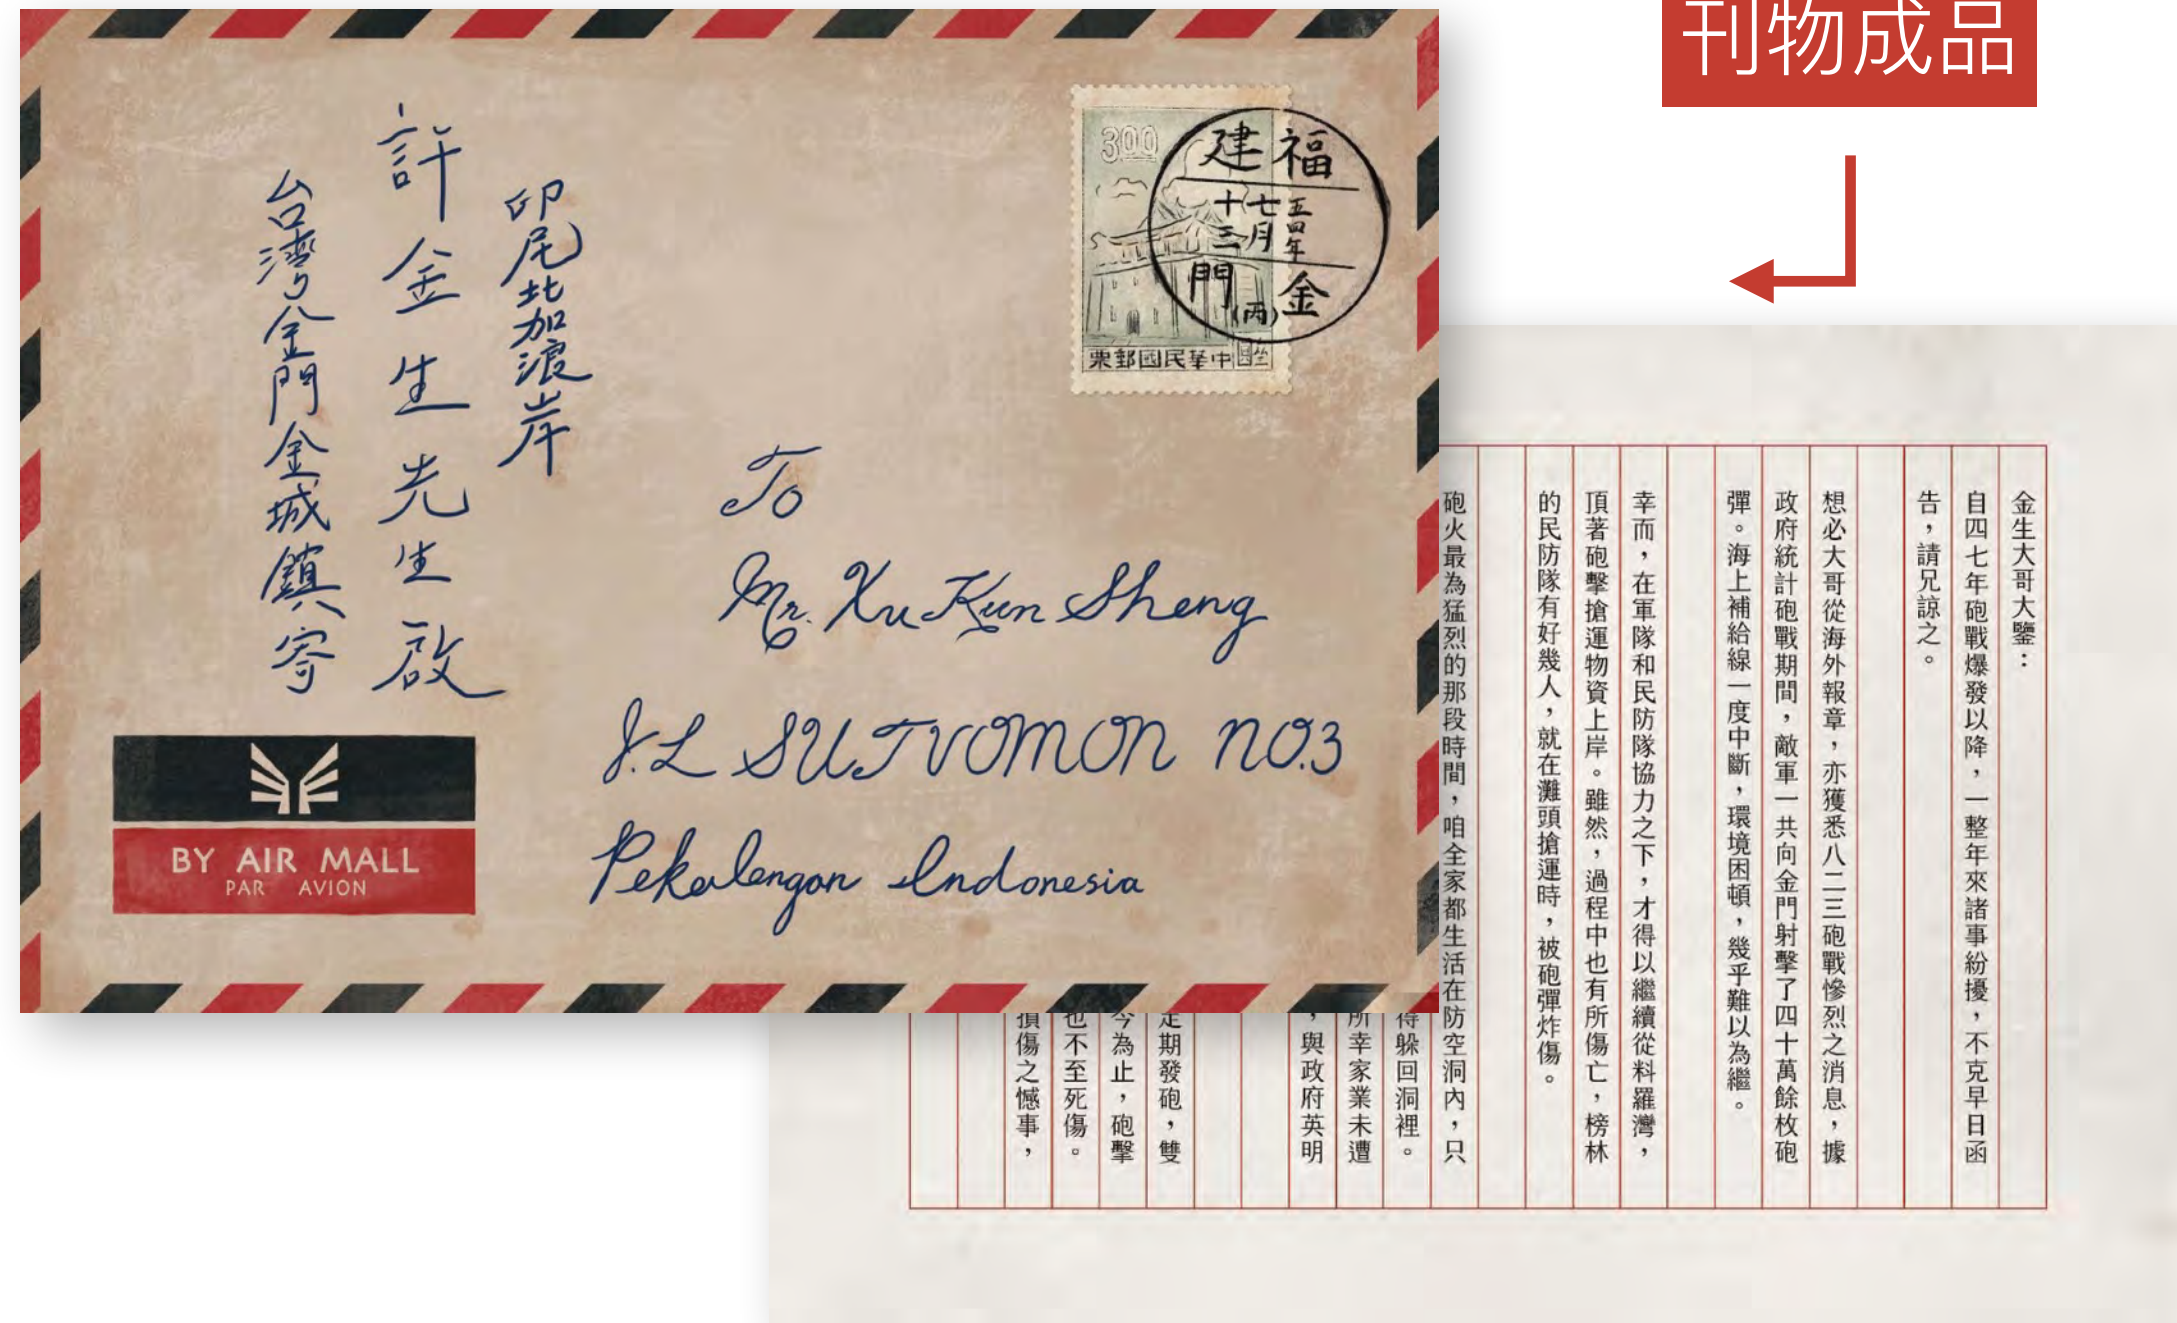 刊物成品
印尾北加浪岸
許金生先生啟
台灣金門金城鎮寄
300
福建
五四年
七月
十三
金門
(丙)
中華民國郵票
To
Mr. Xu Kun Sheng
J.L SUTVOMON NO.3
Pekalengan Indonesia
BY AIR MALL
PAR AVION
金生大哥大鑒：
自四七年砲戰爆發以降，一整年來諸事紛擾，不克早日函
告，請兄諒之。
想必大哥從海外報章，亦獲悉八二三砲戰慘烈之消息，據
政府統計砲戰期間，敵軍一共向金門射擊了四十萬餘枚砲
彈。海上補給線一度中斷，環境困頓，幾乎難以為繼。
幸而，在軍隊和民防隊協力之下，才得以繼續從料羅灣，
頂著砲擊搶運物資上岸。雖然，過程中也有所傷亡，榜林
的民防隊有好幾人，就在灘頭搶運時，被砲彈炸傷。
砲火最為猛烈的那段時間，咱全家都生活在防空洞內，只
得躲回洞裡。
所幸家業未遭
，與政府英明
定期發砲，雙
今為止，砲擊
也不至死傷。
損傷之憾事，